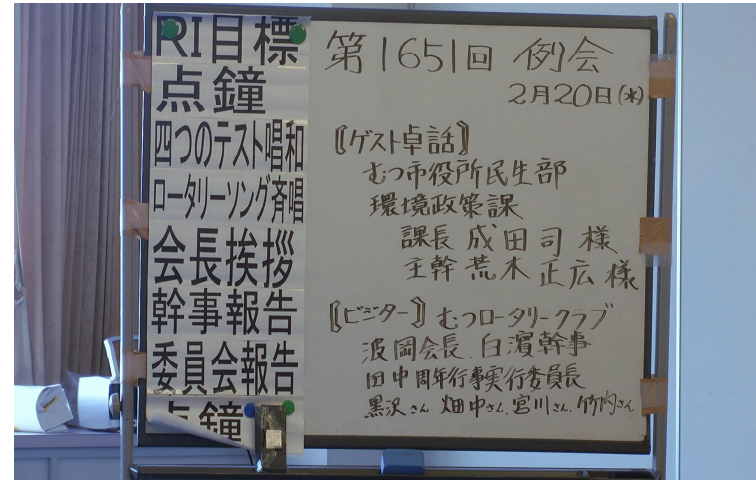 RI目標
点鐘
四つのテスト唱和
ロータリーソング斉唱
会長挨拶
幹事報告
委員会報告
点鐘
第1651回 例会
2月20日(水)
〖ゲスト卓話〗
むつ市役所民生部
環境政策課
課長 成田司様
主幹 荒木正広様
〖ビジター〗むつロータリークラブ
波岡会長、白濱幹事
田中周年行事実行委員長
黒沢さん、畑中さん、宮川さん、竹内さん